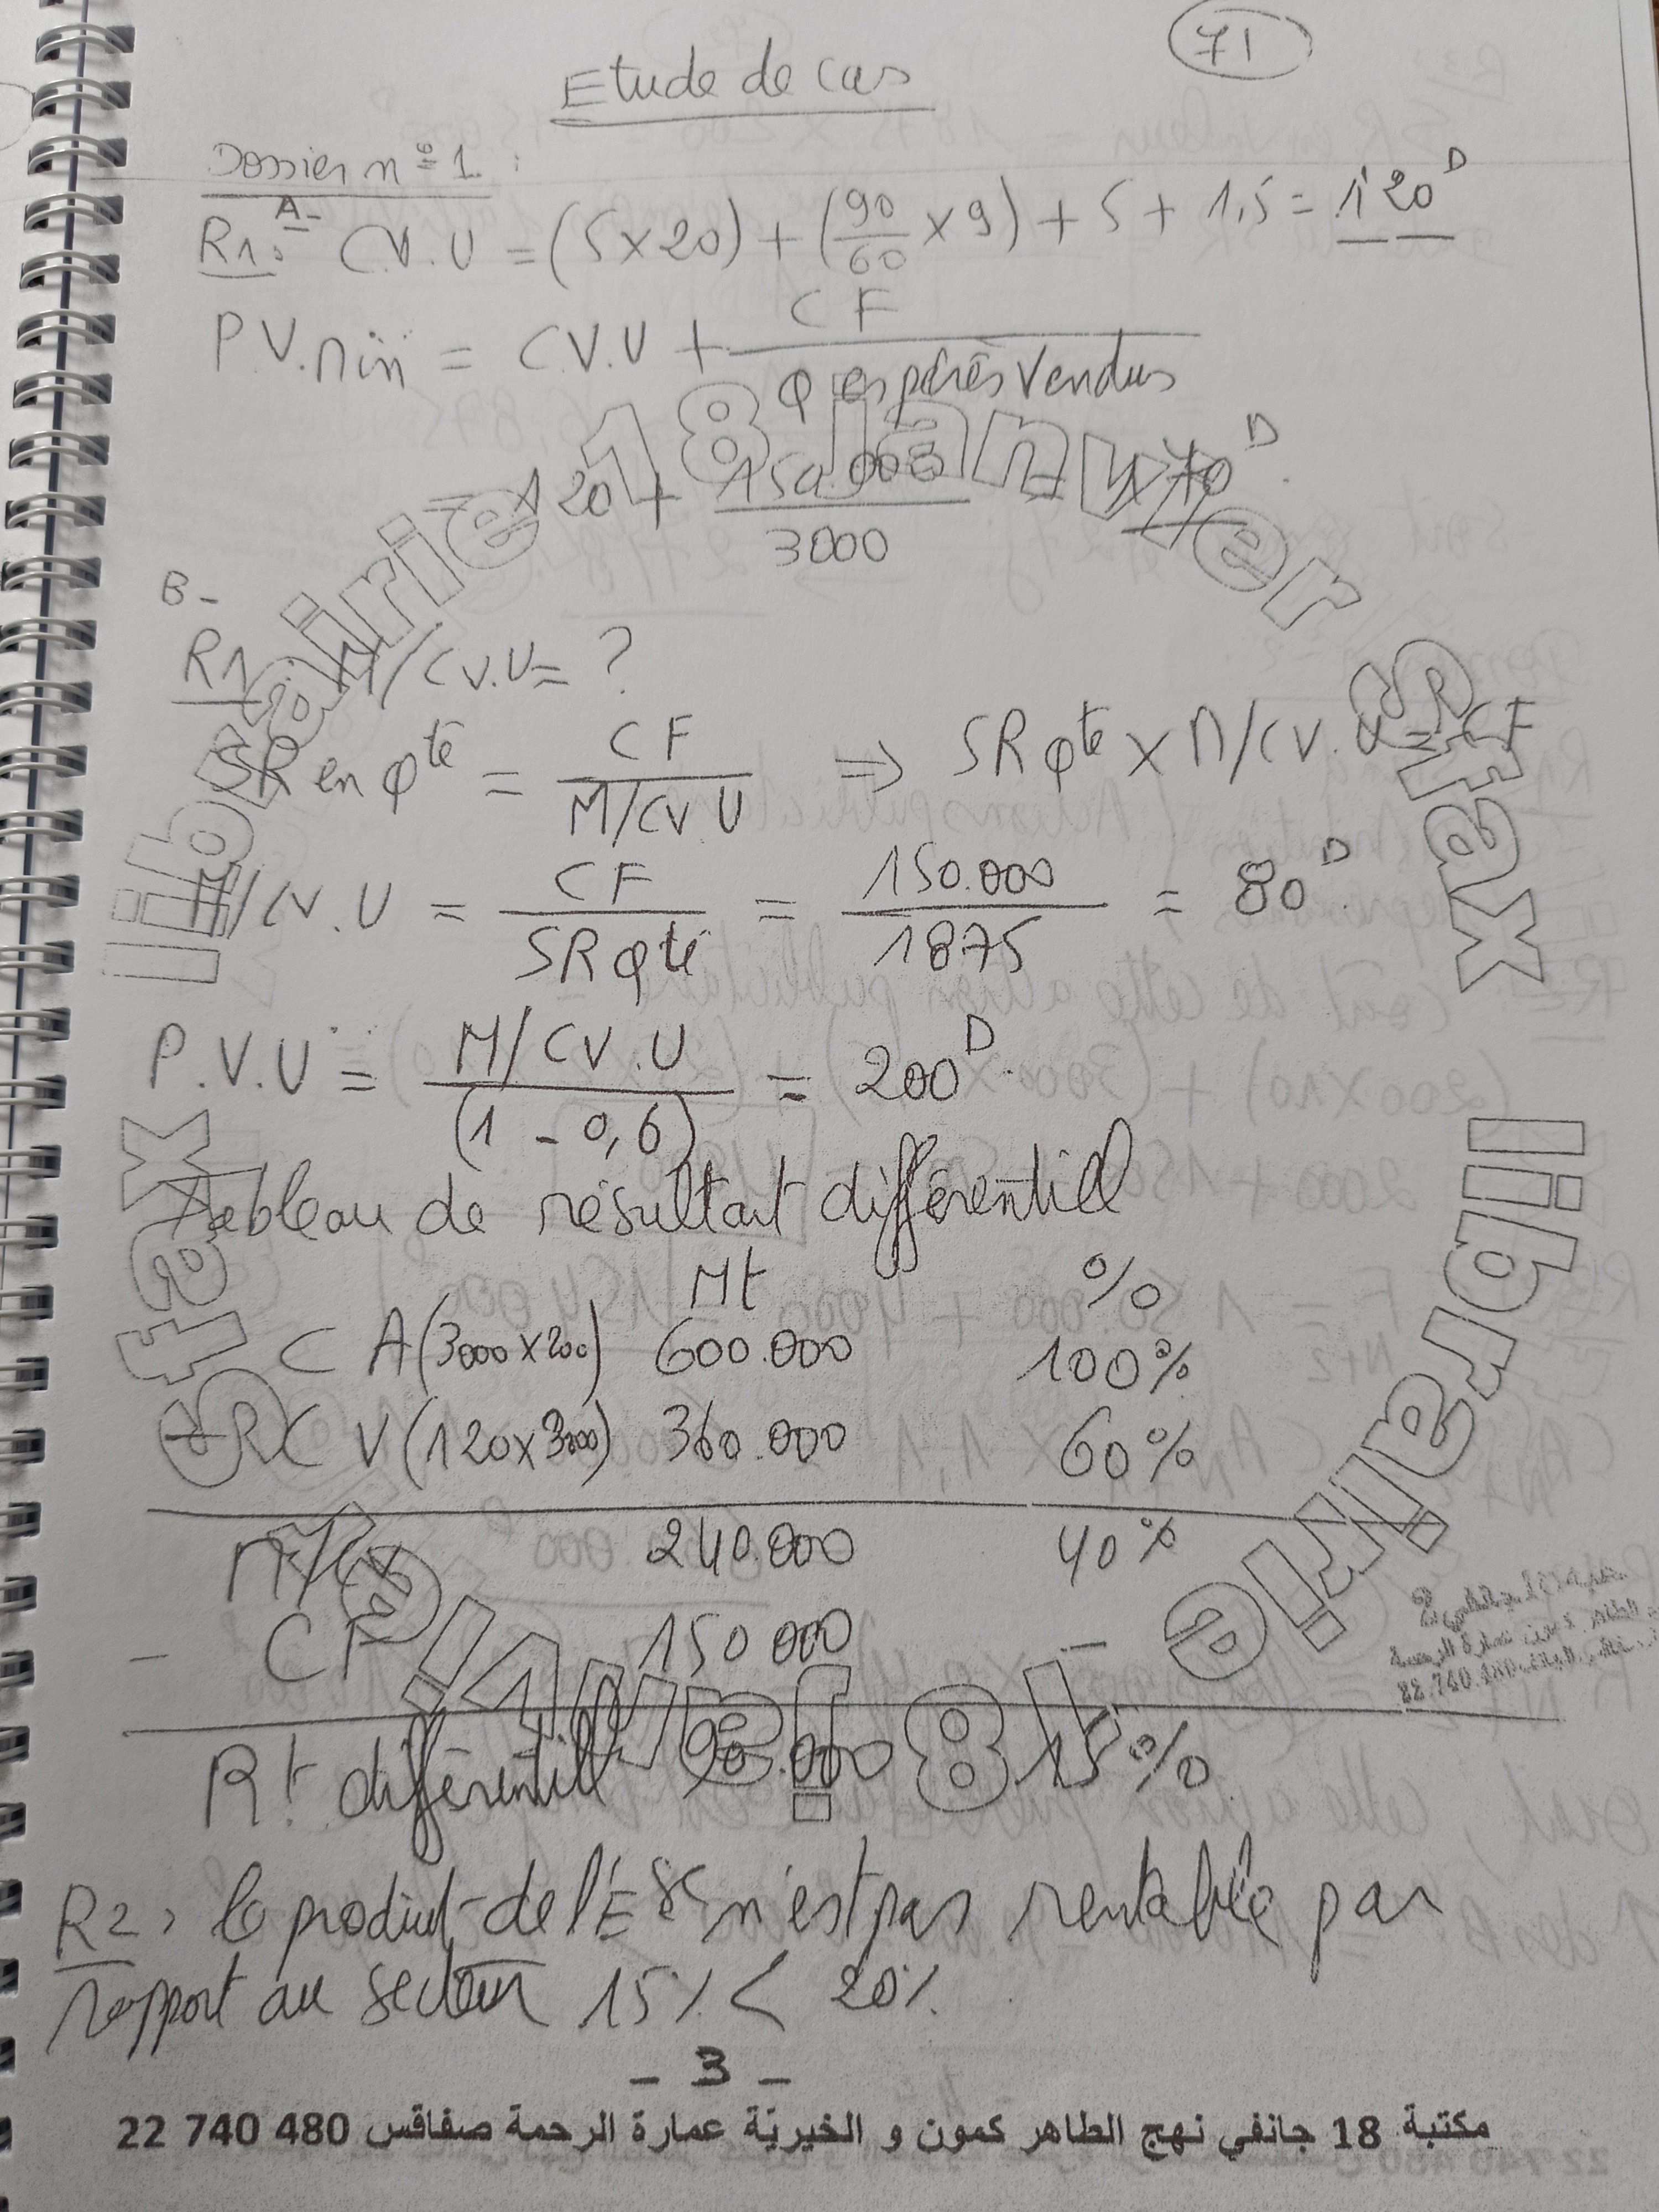 71
Etude de cas
Dossier n°=1 :
A-
R1: C.V.U = (5x20) + (90/60 x 9) + 5 + 1,5 = 120 D
P.V.Min = C.V.U + CF / Q espérés Vendus
120 + 150.000 / 3000 = 170 D
B-
R1 M/CV.U = ?
SR en Qté = CF / M/CV.U ⇒ SR Qté x M/CV.U = CF
M/CV.U = CF / SR Qté = 150.000 / 1875 = 80 D
P.V.U = M/CV.U / (1 - 0,6) = 200 D
Tableau de résultat différentiel
Mt %
CA (3000x200) 600.000 100%
CV (120x3000) 360.000 60%
M/CV 240.000 40%
- CF 150 000 -
Rt différentiel 90.000 15%
R2, le produit de l'Ese n'est pas rentable par
rapport au secteur 15% < 20%
- 3 -
مكتبة 18 جانفي نهج الطاهر كمون و الخيريّة عمارة الرحمة صفاقس 480 740 22
librairie 18 Janvier Sfax
librairie 18 Janvier Sfax
22.740.480